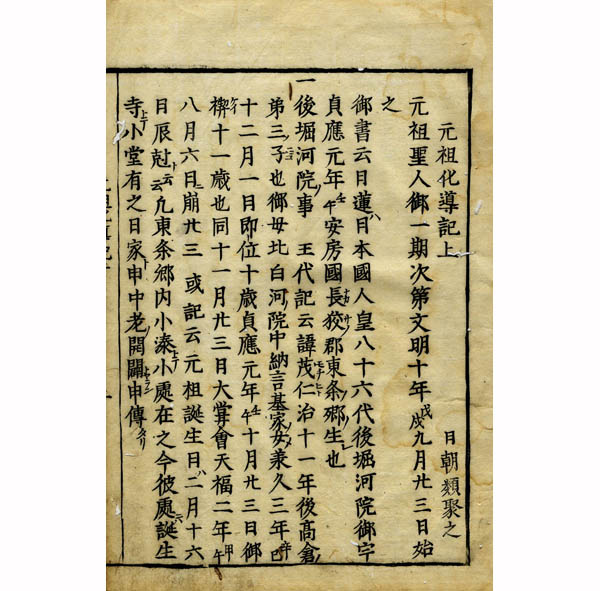 元祖化導記上
日朝類聚之
元祖聖人御一期次第文明十年戊戌九月廿三日始
之
御書云日蓮ハ日本國人皇八十六代後堀河院御宇
貞應元年壬午安房國長狹郡東条ノ郷ノ生也
一後堀河院ノ事 王代記云諱茂仁治十一年後高倉
第三ノ子也御母北白河ノ院中納言基家ノ女兼久三年辛巳
十二月一日即位十歳貞應元年壬午十月廿三日御
禊十一歳也同十一月廿三日大甞會天福二年甲午
八月六日ニ崩廿三 或記云元祖誕生日ハ二月十六
日辰尅ト云云九東条郷内小湊小處在之今彼處誕生
寺小堂有之日家申中老ノ開闢申傳タリ